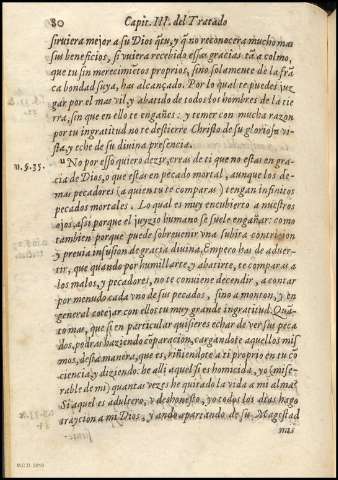 80 Capit. III. del Tratado
siruiera mejor a su Dios q̃ tu, y q̃ no reconocera mucho mas
sus beneficios, si vuiera recebido essas gracias tã a colmo,
que tu sin merecimiẽtos proprios, sino solamente de la frã
ca bondad suya, has alcançado. Por lo qual te puedes juz
gar por el mas vil, y abatido de todos los hombres de la tie
rra, sin que en ello te engañes: y temer con mucha razon
por tu ingratitud no te destierre Christo de su gloriosa vi-
sta, y eche de su diuina presencia.
n. 9. 35. No por esso quiero dezir, creas de ti que no estas en gra
cia de Dios, o que estas en pecado mortal, aunque los de-
mas pecadores (a quien tu te comparas) tengan infinitos
pecados mortales. Lo qual es muy encubierto a nuestros
ojos, assi porque el juyzio humano se suele engañar: como
tambien porque puede sobreuenir vna subita contricion
y preuia infusion de gracia diuina. Empero has de aduer-
tir, que quando por humillarte, y abatirte, te comparas a
los malos, y pecadores, no te conuiene decendir, a contar
por menudo cada vno de sus pecados, sino a monton, y en
general cotejar con ellos tu muy grande ingratitud. Quã-
to mas, que si en particular quisieres echar de ver sus peca
dos, podras haziendo cõparacion, cargandote aquellos mis
mos, desta manera, que es, riñiendote a ti proprio en tu cõ
ciencia, y diziendo: he alli aquel si es homicida, yo (mise-
rable de mi) quantas vezes he quitado la vida a mi alma?
Si aquel es adultero, y deshonesto, yo todos los dias hago
traycion a mi Dios, y ando apartando de su Magestad
mis
M.C.D. 2010